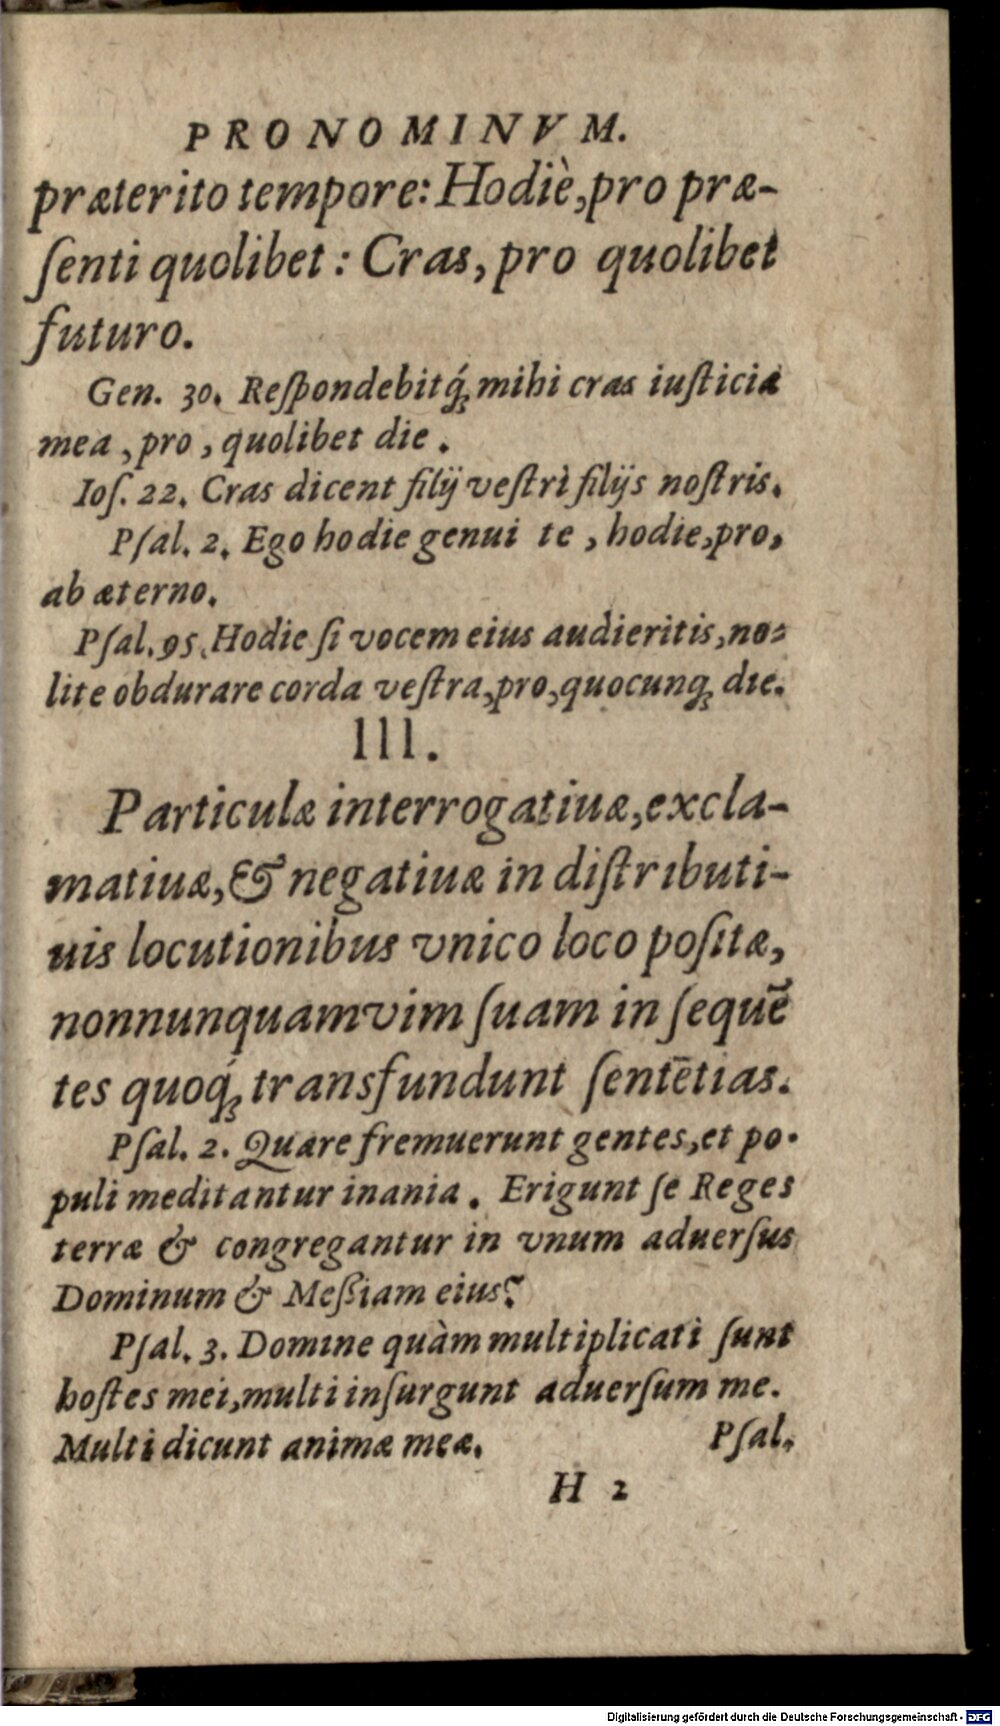 PRONOMINVM.
præterito tempore: Hodiè, pro præ-
ſenti quolibet: Cras, pro quolibet
futuro.
Gen. 30. Reſpondebitq́ꝫ mihi cras iuſticia
mea, pro, quolibet die.
Ioſ. 22. Cras dicent filij veſtri filijs noſtris.
Pſal. 2. Ego hodie genui te, hodie, pro,
ab æterno.
Pſal. 95. Hodie ſi vocem eius audieritis, no-
lite obdurare corda veſtra, pro, quocunqꝫ die.
III.
Particulæ interrogatiuæ, excla-
matiuæ, & negatiuæ in diſtributi-
uis locutionibus vnico loco poſitæ,
nonnunquam vim ſuam in ſequē
tes quoq́ꝫ transfundunt ſentētias.
Pſal. 2. Quare fremuerunt gentes, et po-
puli meditantur inania. Erigunt ſe Reges
terræ & congregantur in vnum aduerſus
Dominum & Meßiam eius?
Pſal. 3. Domine quàm multiplicati ſunt
hoſtes mei, multi inſurgunt aduerſum me.
Multi dicunt animæ meæ. Pſal.
H 2
Digitalisierung gefördert durch die Deutsche Forschungsgemeinschaft - DFG